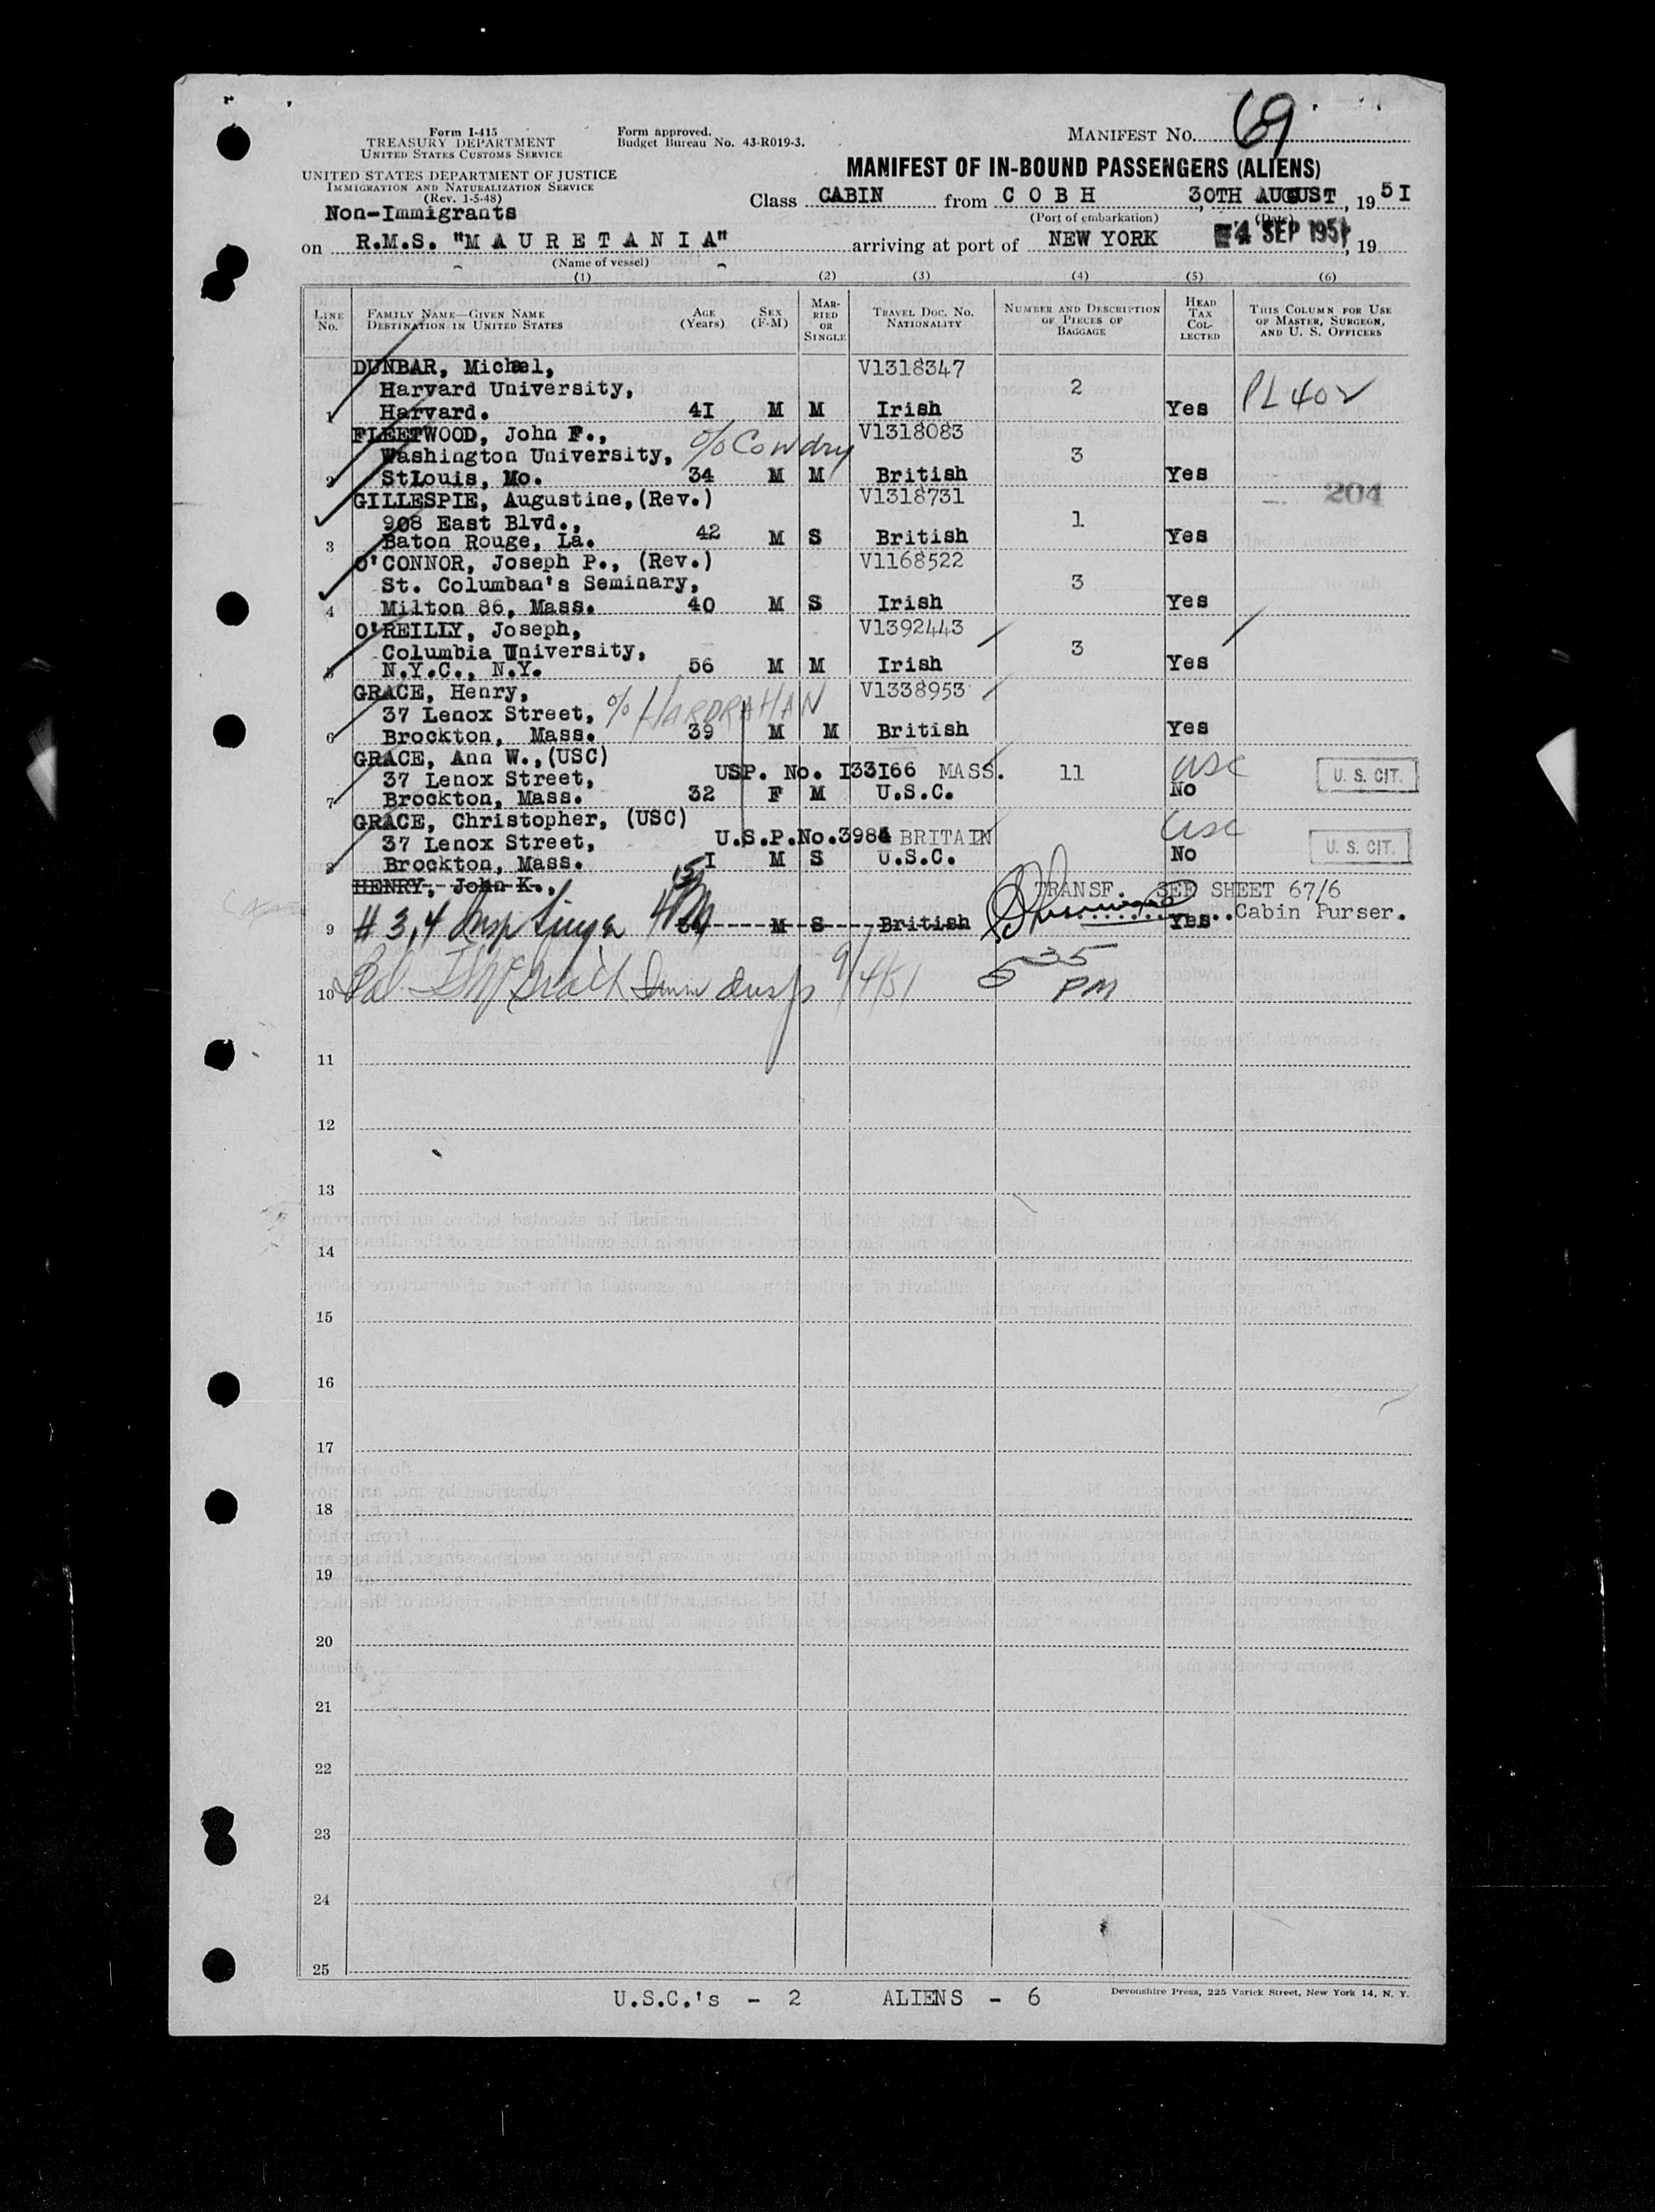 Form I-415
TREASURY DEPARTMENT
UNITED STATES CUSTOMS SERVICE
UNITED STATES DEPARTMENT OF JUSTICE
IMMIGRATION AND NATURALIZATION SERVICE
(Rev. 1-5-48)
Non-Immigrants
Form approved.
Budget Bureau No. 43-R019-3.
MANIFEST No. 69
MANIFEST OF IN-BOUND PASSENGERS (ALIENS)
Class CABIN from C O B H 30TH AUGUST, 1951
(Port of embarkation) (Date)
on R.M.S. "M A U R E T A N I A" arriving at port of NEW YORK 4 SEP 1951, 19
(Name of vessel)
(1) (2) (3) (4) (5) (6)
LINE No. FAMILY NAME—GIVEN NAME DESTINATION IN UNITED STATES AGE (Years) SEX (F-M) MARRIED OR SINGLE TRAVEL DOC. NO. NATIONALITY NUMBER AND DESCRIPTION OF PIECES OF BAGGAGE HEAD TAX COLLECTED THIS COLUMN FOR USE OF MASTER, SURGEON, AND U. S. OFFICERS
DUNBAR, Michael, V1318347
Harvard University, 2 PL 402
1 Harvard. 41 M M Irish Yes
FLEETWOOD, John F., % Cowdry V1318083
Washington University, 3
2 StLouis, Mo. 34 M M British Yes
204
GILLESPIE, Augustine, (Rev.) V1318731
908 East Blvd., 1
3 Baton Rouge, La. 42 M S British Yes
O'CONNOR, Joseph P., (Rev.) V1168522
St. Columban's Seminary, 3
4 Milton 86, Mass. 40 M S Irish Yes
O'REILLY, Joseph, V1392443
Columbia University, 3
5 N.Y.C., N.Y. 56 M M Irish Yes
GRACE, Henry, V1338953
37 Lenox Street, % HARDRAHAN
6 Brockton, Mass. 39 M M British Yes
GRACE, Ann W., (USC)
37 Lenox Street, USP. No. I33I66 MASS. 11 USC U. S. CIT.
7 Brockton, Mass. 32 F M U.S.C. No
GRACE, Christopher, (USC)
37 Lenox Street, U.S.P.No.3984 BRITAIN USC U. S. CIT.
8 Brockton, Mass. I M S U.S.C. No
HENRY, John K., TRANSF. SEE SHEET 67/6
9 # 3,4 Insp M S British Yes Cabin Purser.
10 Imm Insp 9/4/51 5 35 PM
11
12
13
14
15
16
17
18
19
20
21
22
23
24
25
U.S.C.'s - 2 ALIENS - 6
Devonshire Press, 225 Varick Street, New York 14, N. Y.